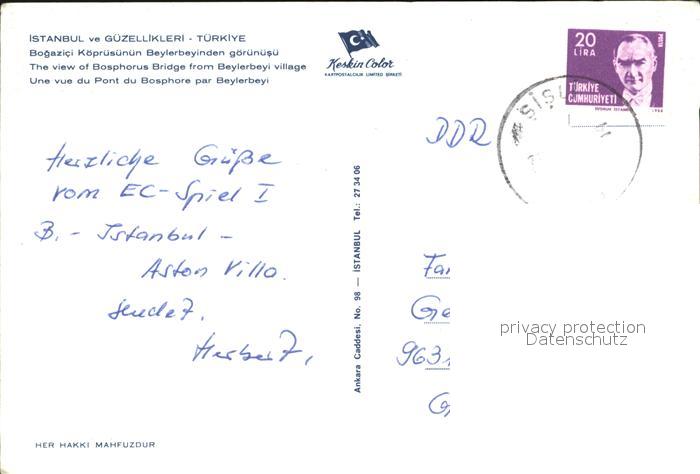 İSTANBUL ve GÜZELLİKLERİ - TÜRKİYE
Boğaziçi Köprüsünün Beylerbeyinden görünüşü
The view of Bosphorus Bridge from Beylerbeyi village
Une vue du Pont du Bosphore par Beylerbeyi
Keskin Color
KARTPOSTALCILIK LIMITED ŞİRKETİ
20
LİRA
POSTA
TÜRKİYE
CUMHURİYETİ
ŞİŞL
DDR
Herzliche Grüße
vom EC-Spiel I
B. - Istanbul -
Aston Villa.
sendet,
Herbert,
Ankara Caddesi, No. 98 — İSTANBUL Tel.: 27 34 06
Fa
Ge
963
privacy protection
Datenschutz
HER HAKKI MAHFUZDUR